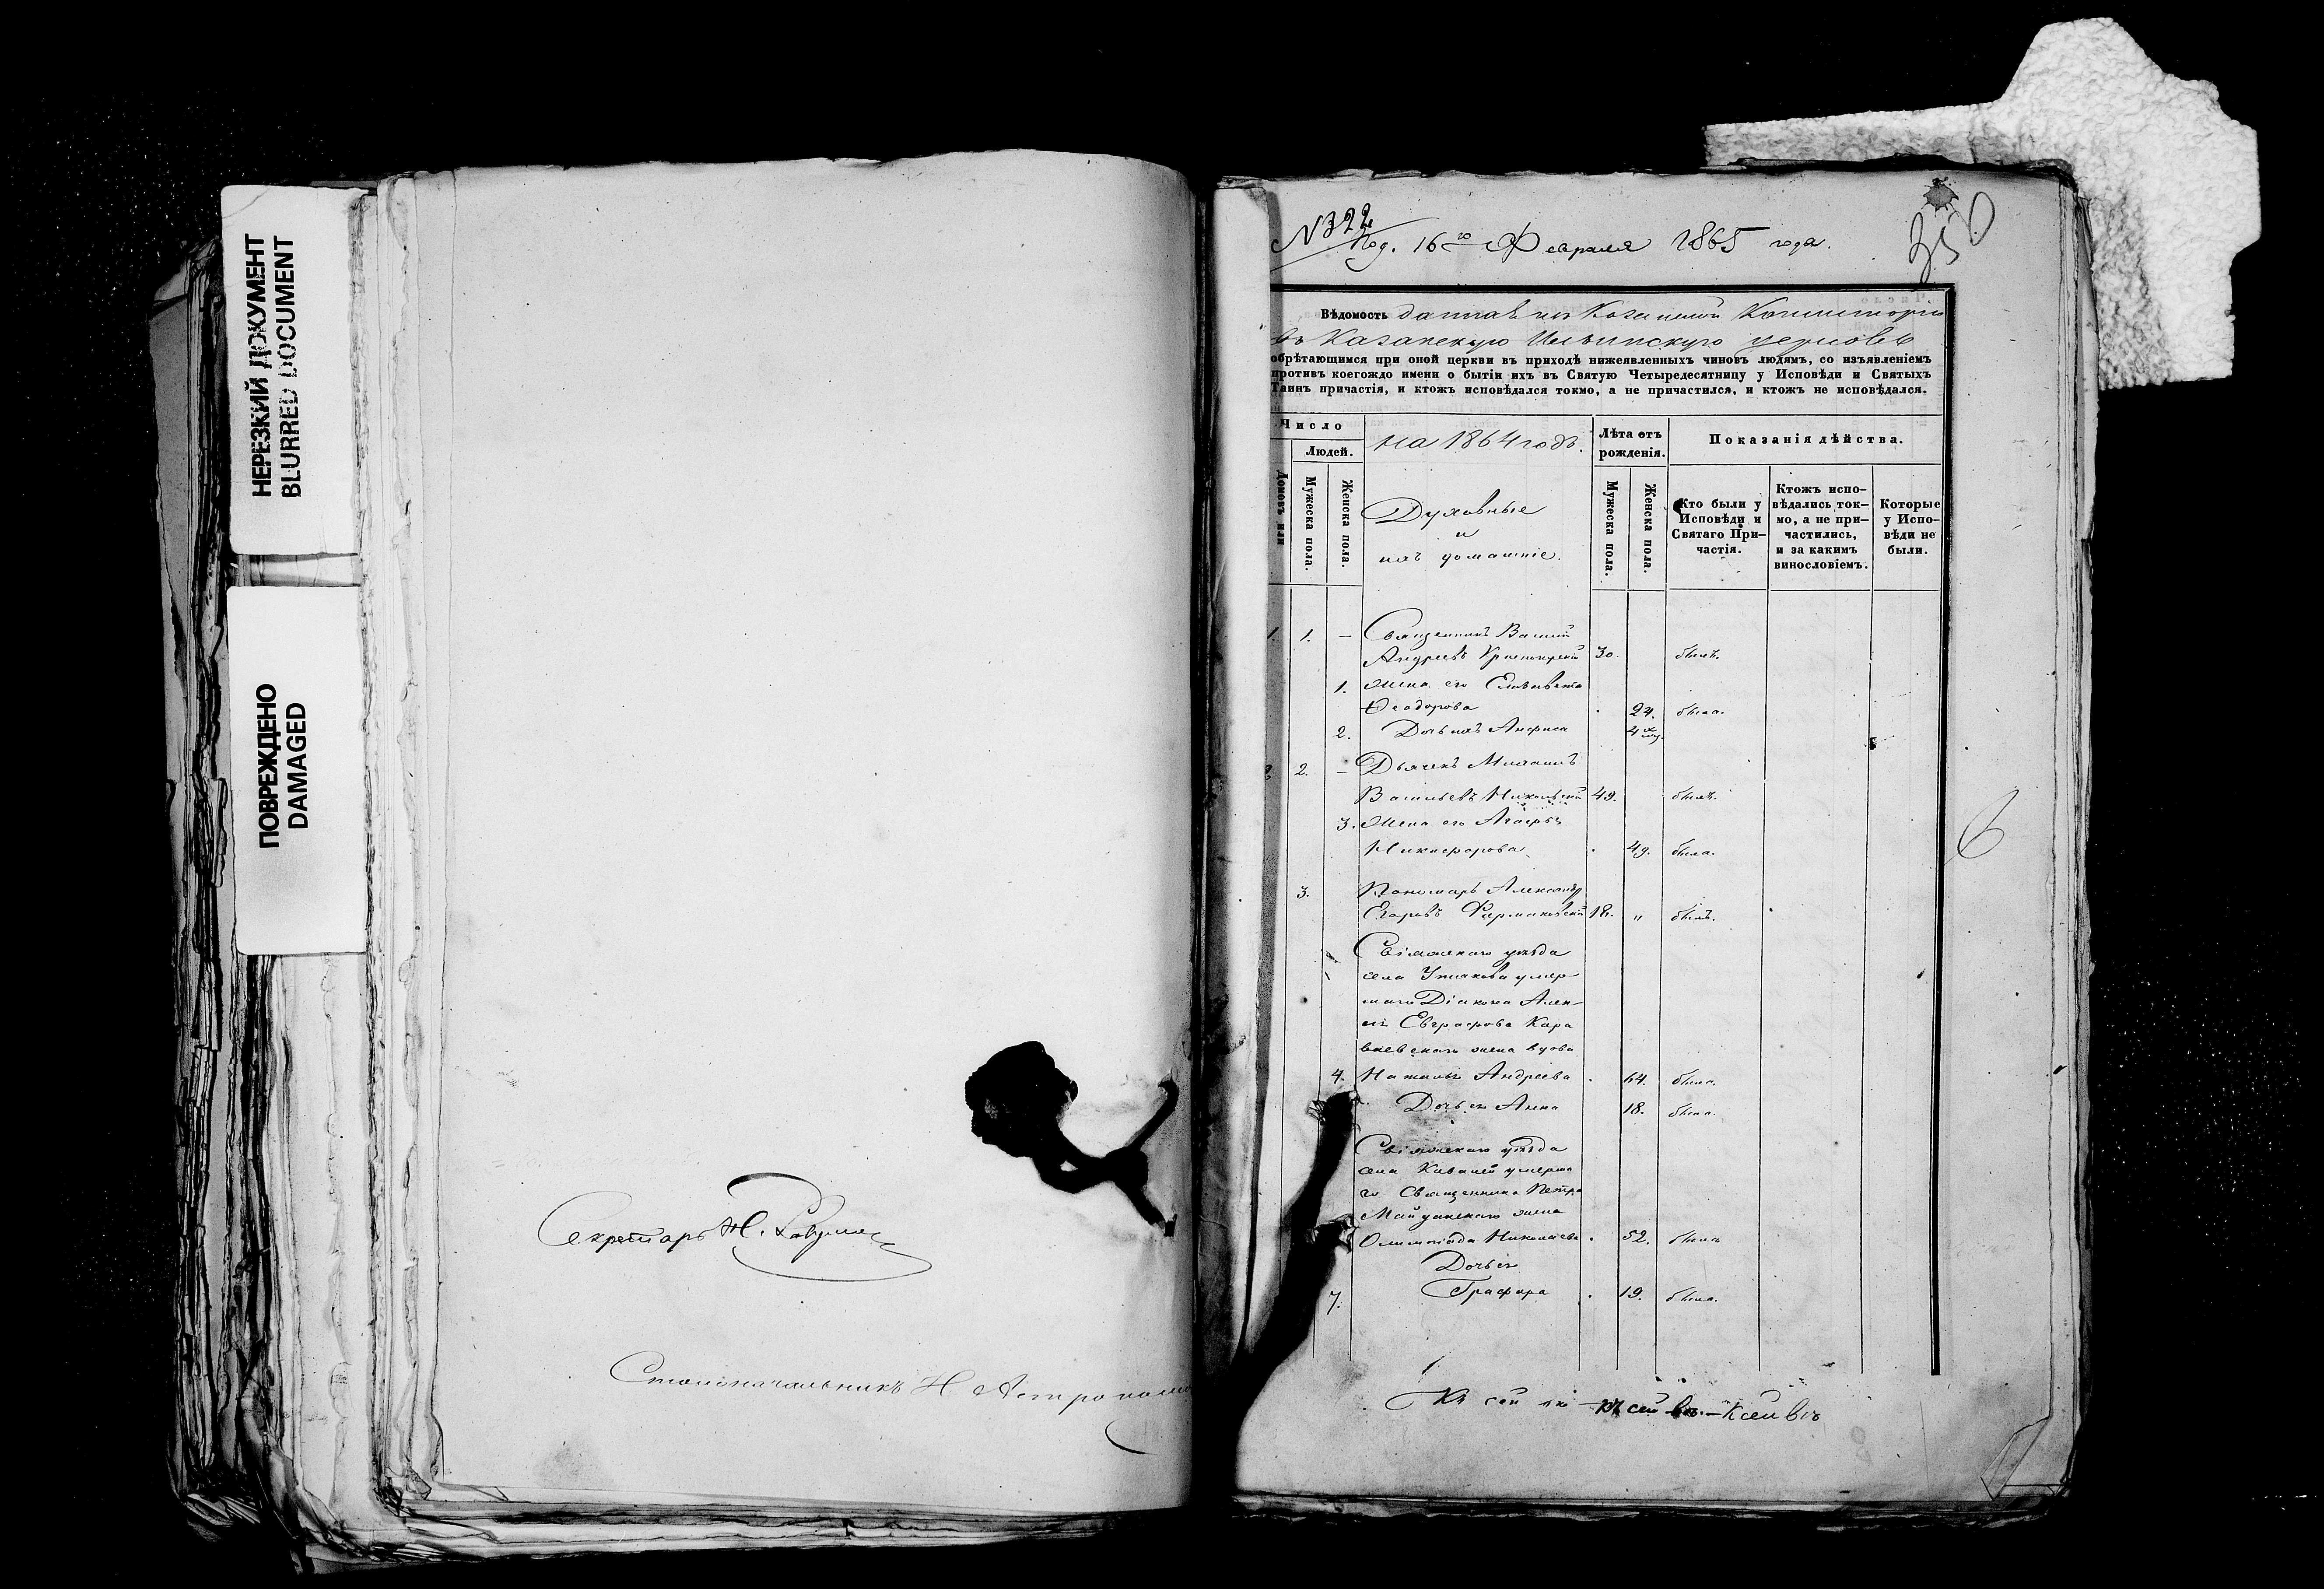 НЕРЕЗКИЙ ДОКУМЕНТ
BLURRED DOCUMENT
ПОВРЕЖДЕНО
DAMAGED
Секретарь Н.
Столоначальникъ Н Астроном
N 322
Под. 16го Февраля 1865 года.
350
Вѣдомость данная изъ Казанской Консисторіи
въ Казанскую Ильинскую церковь
обрѣтающимся при оной церкви въ приходѣ нижеявленныхъ чиновъ людямъ, со изъявленіемъ
противъ коегождо имени о бытіи ихъ въ Святую Четыредесятницу у Исповѣди и Святыхъ
Таинъ причастія, и ктожъ исповѣдался токмо, а не причастился, и ктожъ не исповѣдался.
Число
Людей.
Домовъ или
Мужеска пола.
Женска пола.
на 1864 годъ.
Духовные
и
ихъ домашніе.
Лѣта отъ
рожденія.
Мужеска пола.
Женска пола.
Показанія дѣйства.
Кто были у
Исповѣди и
Святаго При-
частія.
Ктожъ испо-
вѣдались ток-
мо, а не при-
частились,
и за какимъ
винословіемъ.
Которые
у Испо-
вѣди не
были.
1. 1. — Священникъ Василій
Андреевъ 30. былъ.
1. Жена его Елизавета
Ѳеодорова 24. была.
2. Дочь ихъ Анфиса 4
2. 2. — Дьячекъ Михаилъ
Васильевъ Никольскій 49. былъ.
3. Жена его Агафья
Никифорова 49. была.
3. Пономарь Александръ
Егоровъ Фармаковскій 18. " былъ.
Свіяжскаго уѣзда
села умер-
шаго Діакона Алек-
сѣя Евграфова Кара
жена вдова
4. Наталья Андреева 64. была.
Дочь ея Анна 18. была.
Свіяжскаго уѣзда
села Кавалей умерша
го Священника Петра
Майданскаго жена
Олимпіада Николаева 52. была
Дочь ея
7. Графира 19. была.
6
Къ сей къ сей вѣ. — К сей вѣ